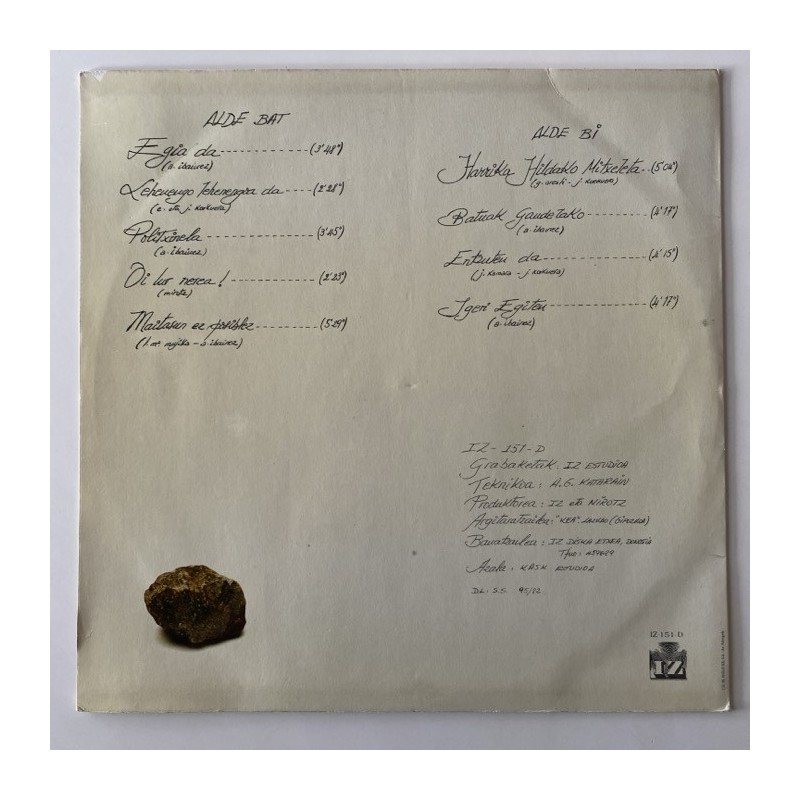 ALDE BAT
Egia da ----------- (3'48")
(a. ibainez)
Lehenengo lehenengoa da ---- (2'28")
(e. eta j. korkuera)
Politxinela ------------- (3'45")
(a. ibainez)
Oi lur nerea! ------------- (2'23")
(mintz)
Maitasun ez ---------- (5'29")
(l. mª mujika - a. ibainez)
ALDE BI
Harrika Hildako Mitxeleta -- (5'04")
Batuak Gaudelako --------- (4'17")
(a. ibainez)
Entzuten da ------------ (4'15")
Igeri Egiten ------------ (4'17")
(a. ibainez)
IZ - 151 - D
Grabaketak : IZ ESTUDIOA
Teknikoa : A.G. KATARAIN
Produktorea : IZ eta NIROTZ
Argitaratzailea :
Banatzailea : IZ DISKA ETXEA, DONOSTIA
Tfno :
Azala : KASK ESTUDIOA
DL. S.S. 95/82
IZ-151-D
IZ